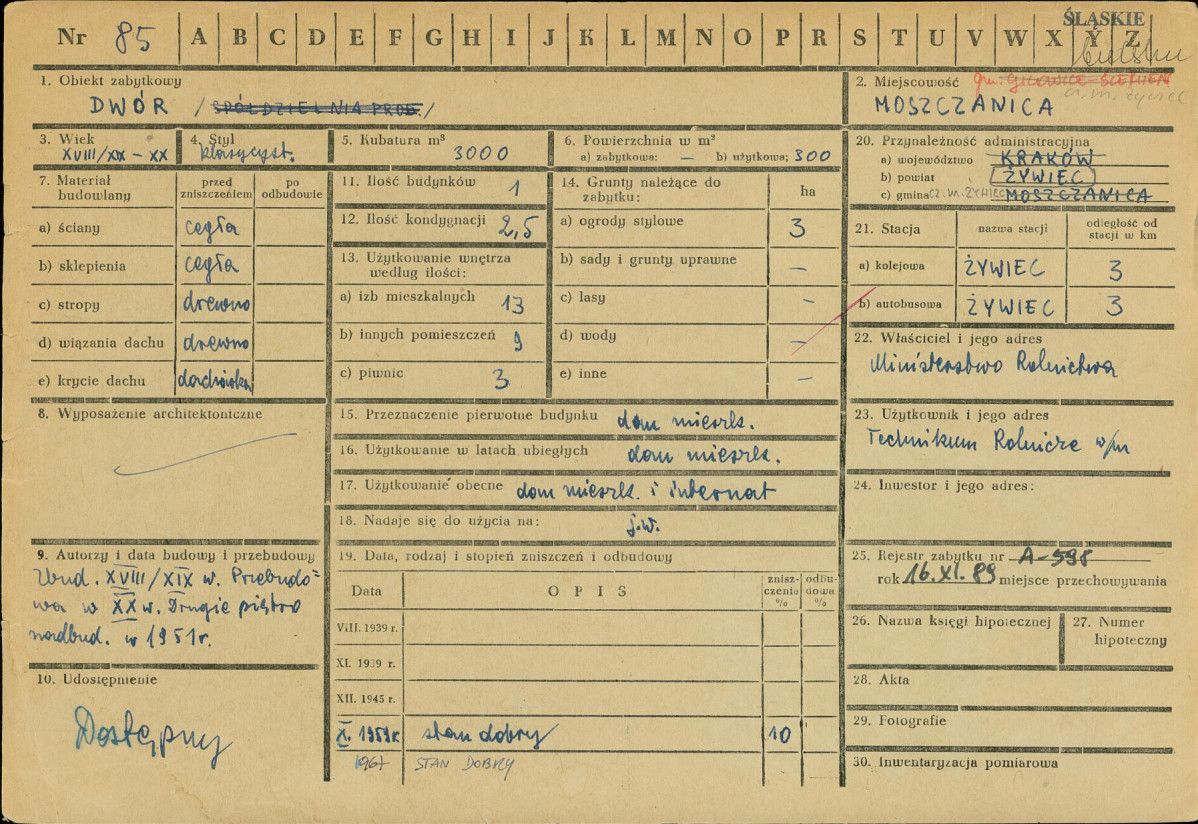 ŚLĄSKIE
Nr 85 A B C D E F G H I J K L M N O P R S T U V W X Y Z
bielsko
1. Obiekt zabytkowy
DWÓR / SPÓŁDZIELNIA PROD. /
2. Miejscowość gm. GILOWICE-ŚLEMIEŃ
cz. m. Żywiec
MOSZCZANICA
3. Wiek
XVIII/XIX – XX
4. Styl
klasycyst.
5. Kubatura m³
3000
6. Powierzchnia w m²
a) zabytkowa: — b) użytkowa: 300
7. Materiał budowlany
przed zniszczeniem
po odbudowie
a) ściany cegła
b) sklepienia cegła
c) stropy drewno
d) wiązania dachu drewno
e) krycie dachu dachówka
8. Wyposażenie architektoniczne
9. Autorzy i data budowy i przebudowy
Zbud. XVIII/XIX w. Przebudo=
wa w XX w. Drugie piętro
nadbud. w 1951r.
10. Udostępnienie
Dostępny
11. Ilość budynków 1
12. Ilość kondygnacji 2,5
13. Użytkowanie wnętrza
według ilości:
a) izb mieszkalnych 13
b) innych pomieszczeń 9
c) piwnic 3
14. Grunty należące do
zabytku:
ha
a) ogrody stylowe 3
b) sady i grunty uprawne —
c) lasy —
d) wody —
e) inne —
15. Przeznaczenie pierwotne budynku dom mieszk.
16. Użytkowanie w latach ubiegłych dom mieszk.
17. Użytkowanie obecne dom mieszk. i internat
18. Nadaje się do użycia na: j.w.
19. Data, rodzaj i stopień zniszczeń i odbudowy
Data
OPIS
znisz-
czenia
%
odbu-
dowa
%
VIII. 1939 r.
XI. 1939 r.
XII. 1945 r.
X. 1959r. stan dobry 10
1967 STAN DOBRY
20. Przynależność administracyjna
a) województwo KRAKÓW
b) powiat ŻYWIEC
c) gmina cz. m. ŻYWIEC MOSZCZANICA
21. Stacja
nazwa stacji
odległość od
stacji w km
a) kolejowa ŻYWIEC 3
b) autobusowa ŻYWIEC 3
22. Właściciel i jego adres
Ministerstwo Rolnictwa
23. Użytkownik i jego adres
Technikum Rolnicze w/m
24. Inwestor i jego adres:
25. Rejestr zabytku nr A-598
rok 16.XI.89 miejsce przechowywania
26. Nazwa księgi hipotecznej
27. Numer
hipoteczny
28. Akta
29. Fotografie
30. Inwentaryzacja pomiarowa